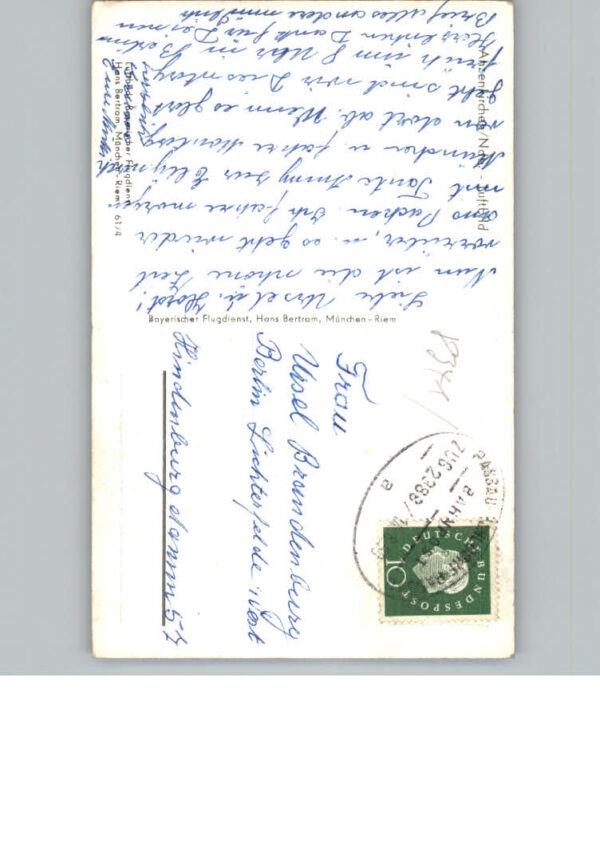 Anzenkirchen/Luftbild
Liebe Ursel u. Horst!
Nun ist die schöne Zeit
vorrüber, u. es geht wieder
ans Packen. Ich fahre morgen
mit Tante Anny zur Elly nach
München u. fahre Montag
von dort ab. Wenn es glatt
geht sind wir Dienstag
früh um 8 Uhr in Berlin
Herzlichen Dank für Deinen
Brief alles andere mündlich
Bayerischer Flugdienst
Hans Bertram, München-Riem 61/4
Bayerischer Flugdienst, Hans Bertram, München-Riem
8341/
PASSAU
ZUG 2383
a
DEUTSCHE BUNDESPOST
10
Frau
Ursel Brandenburg
Berlin Lichterfelde West
Hindenburgdamm 57